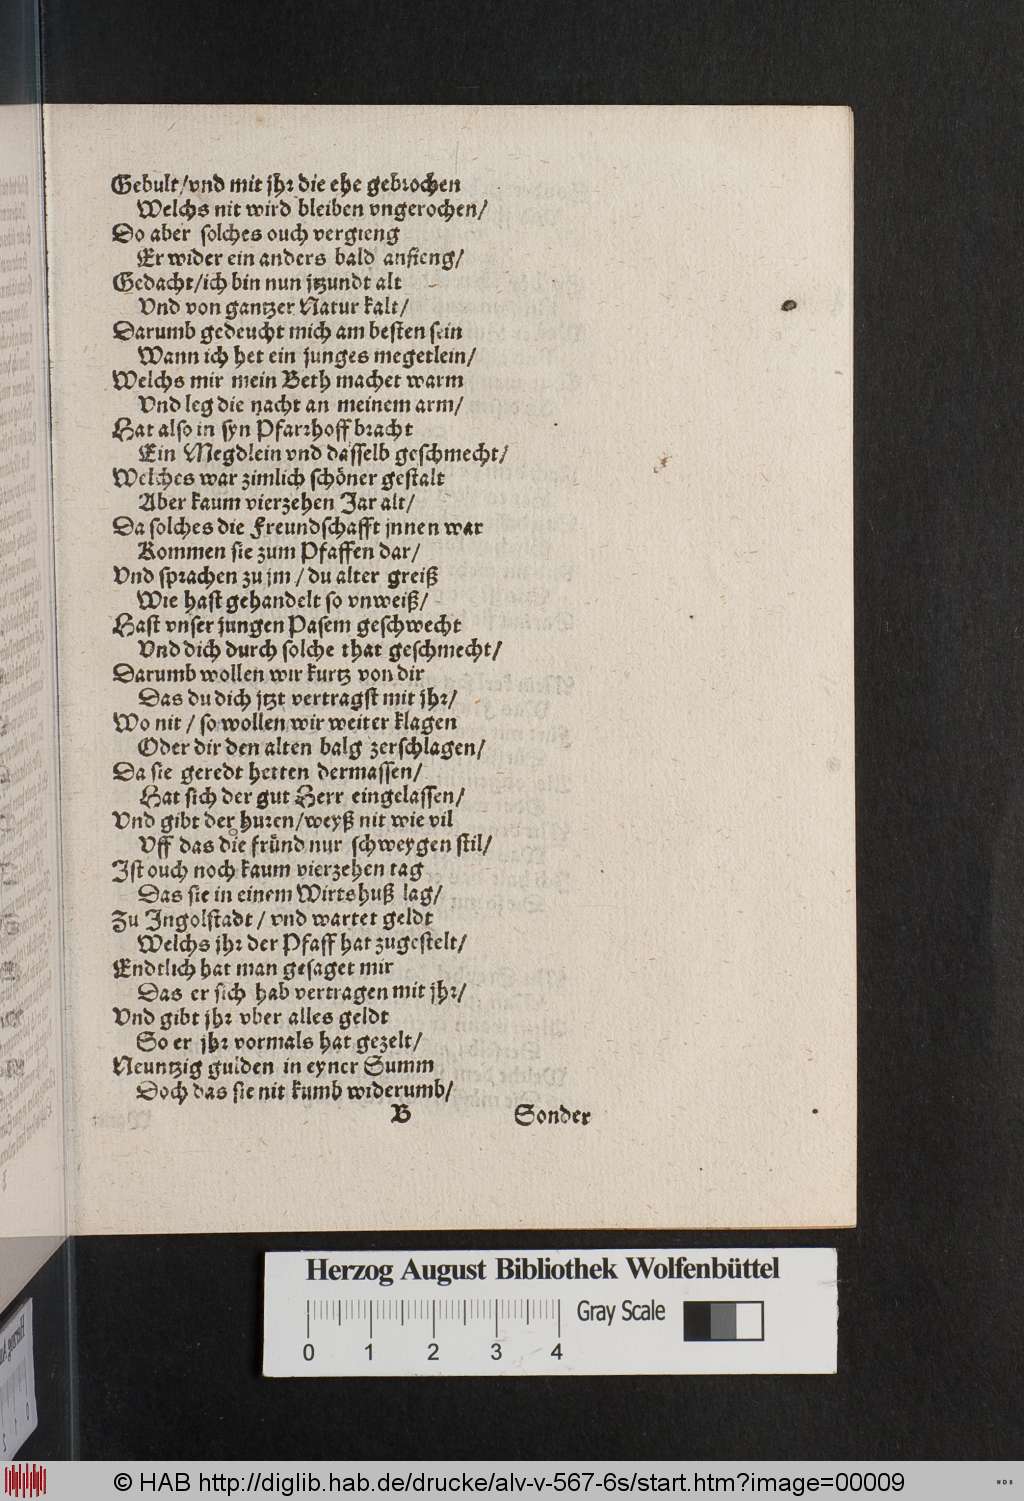 Gebult/vnd mit jhr die ehe gebrochen
Welchs nit wird bleiben vngerochen/
Do aber solches ouch vergieng
Er wider ein anders bald anfieng/
Gedacht/ich bin nun jtzundt alt
Vnd von gantzer Natur kalt/
Darumb gedeucht mich am besten sein
Wann ich het ein junges megetlein/
Welchs mir mein Beth machet warm
Vnd leg die nacht an meinem arm/
Hat also in syn Pfarrhoff bracht
Ein Megdlein vnd dasselb geschmecht/
Welches war zimlich schöner gestalt
Aber kaum vierzehen Jar alt/
Da solches die Freundschafft jnnen war
Kommen sie zum Pfaffen dar/
Vnd sprachen zu jm / du alter greiß
Wie hast gehandelt so vnweiß/
Hast vnser jungen Pasem geschwecht
Vnd dich durch solche that geschmecht/
Darumb wollen wir kurtz von dir
Das du dich jtzt vertragst mit jhr/
Wo nit / so wollen wir weiter klagen
Oder dir den alten balg zerschlagen/
Da sie geredt hetten dermassen/
Hat sich der gut Herr eingelassen/
Vnd gibt der huren/weyß nit wie vil
Vff das die fründ nur schweygen stil/
Ist ouch noch kaum vierzehen tag
Das sie in einem Wirtshuß lag/
Zu Ingolstadt / vnd wartet geldt
Welchs jhr der Pfaff hat zugestelt/
Endtlich hat man gesaget mir
Das er sich hab vertragen mit jhr/
Vnd gibt jhr vber alles geldt
So er jhr vormals hat gezelt/
Neuntzig gulden in eyner Summ
Doch das sie nit kumb widerumb/
B Sonder
Herzog August Bibliothek Wolfenbüttel
Gray Scale
0 1 2 3 4
© HAB http://diglib.hab.de/drucke/alv-v-567-6s/start.htm?image=00009